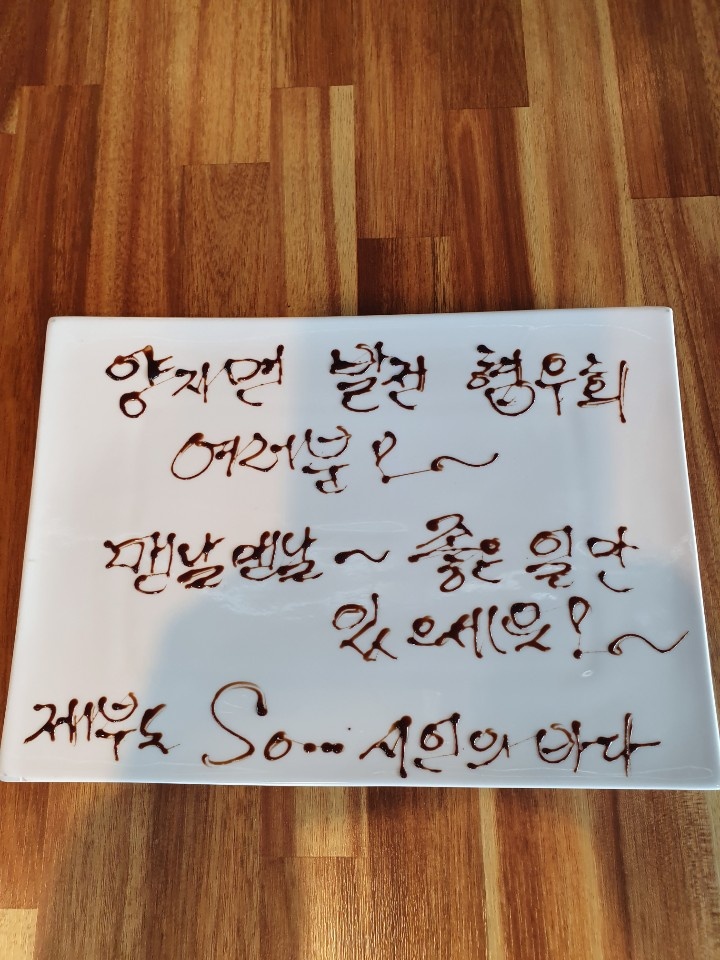 양지면 발전 협우회
여러분!~
맨날맨날~ 좋은 일만
있으세요!~
제부도 So... 시인의 바다